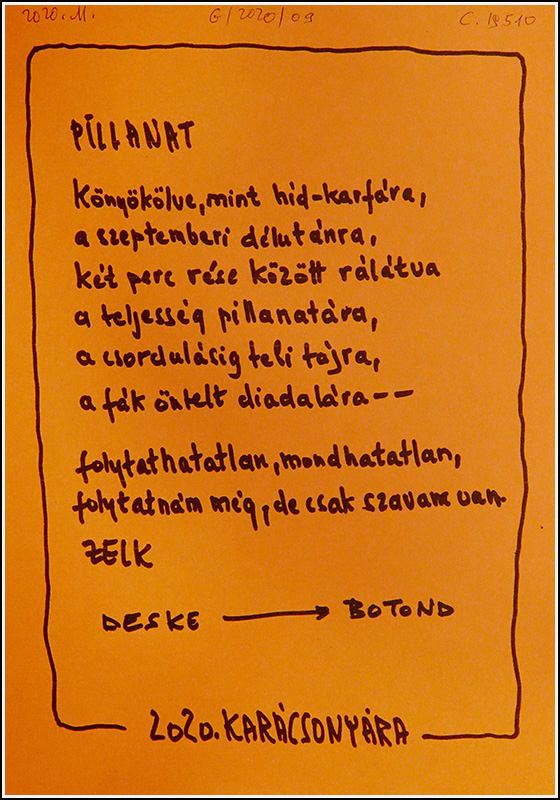 2020. 11. G/2020/09 C. 19510
PILLANAT
Könyökölve, mint híd-karfára,
a szeptemberi délutánra,
két perc rése között rálátva
a teljesség pillanatára,
a csordulásig teli tájra,
a fák öntelt diadalára--
folytathatatlan, mondhatatlan,
folytatnám még, de csak szavam van.
ZELK
DESKE → BOTOND
2020. KARÁCSONYÁRA